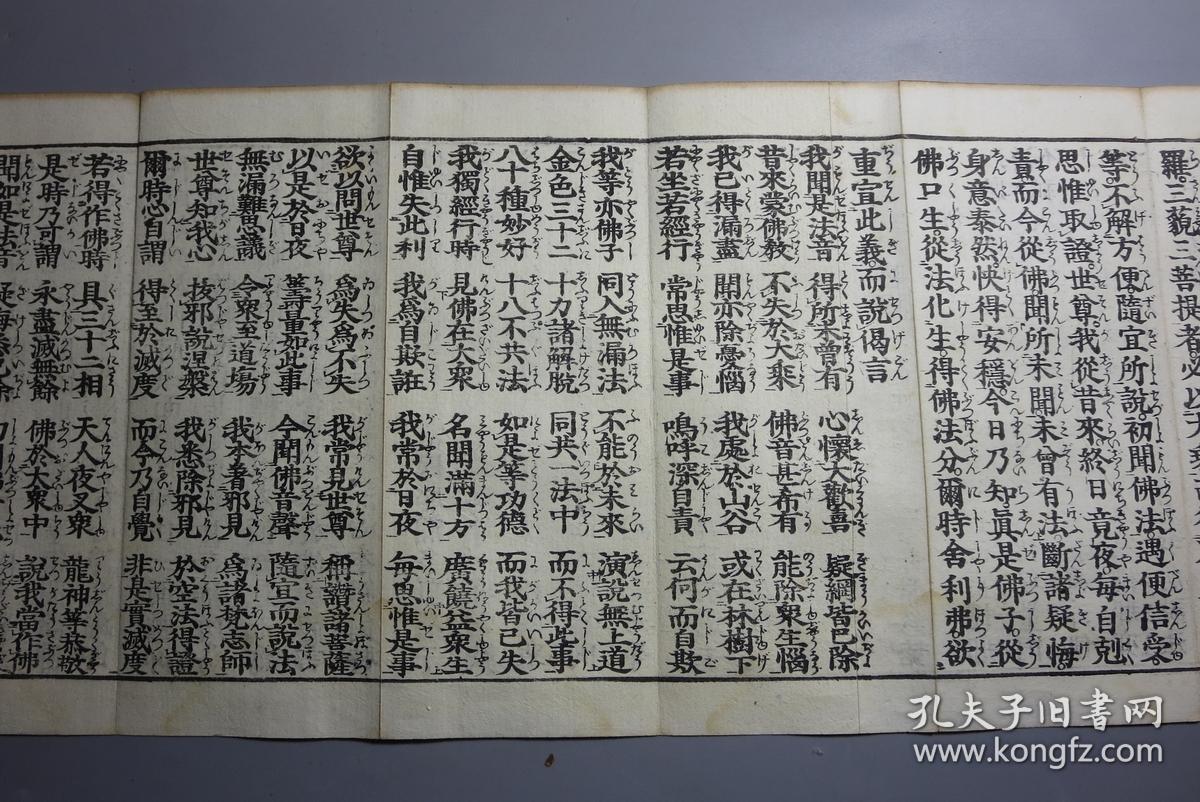 羅三藐三菩提者必以大
等不解方便隨宜所說初聞佛法遇便信受
思惟取證世尊我從昔來終日竟夜每自剋
責而今從佛聞所未聞未曾有法斷諸疑悔
身意泰然快得安穩今日乃知眞是佛子從
佛口生從法化生得佛法分爾時舍利弗欲
重宣此義而說偈言
我聞是法音 得所未曾有 心懷大歡喜 疑網皆已除
昔來蒙佛教 不失於大乘 佛音甚希有 能除衆生惱
我已得漏盡 聞亦除憂惱 我處於山谷 或在林樹下
若坐若經行 常思惟是事 嗚呼深自責 云何而自欺
我等亦佛子 同入無漏法 不能於未來 演說無上道
金色三十二 十力諸解脫 同共一法中 而不得此事
八十種妙好 十八不共法 如是等功德 而我皆已失
我獨經行時 見佛在大衆 名聞滿十方 廣饒益衆生
自惟失此利 我爲自欺誑 我常於日夜 每思惟是事
欲以問世尊 爲失爲不失 我常見世尊 稱讚諸菩薩
以是於日夜 籌量如此事 今聞佛音聲 隨宜而說法
無漏難思議 令衆至道場 我本著邪見 爲諸梵志師
世尊知我心 拔邪說涅槃 我悉除邪見 於空法得證
爾時心自謂 得至於滅度 而今乃自覺 非是實滅度
若得作佛時 具三十二相 天人夜叉衆 龍神等恭敬
是時乃可謂 永盡滅無餘 佛於大衆中 說我當作佛
聞如是法音
孔夫子旧書网
www.kongfz.com